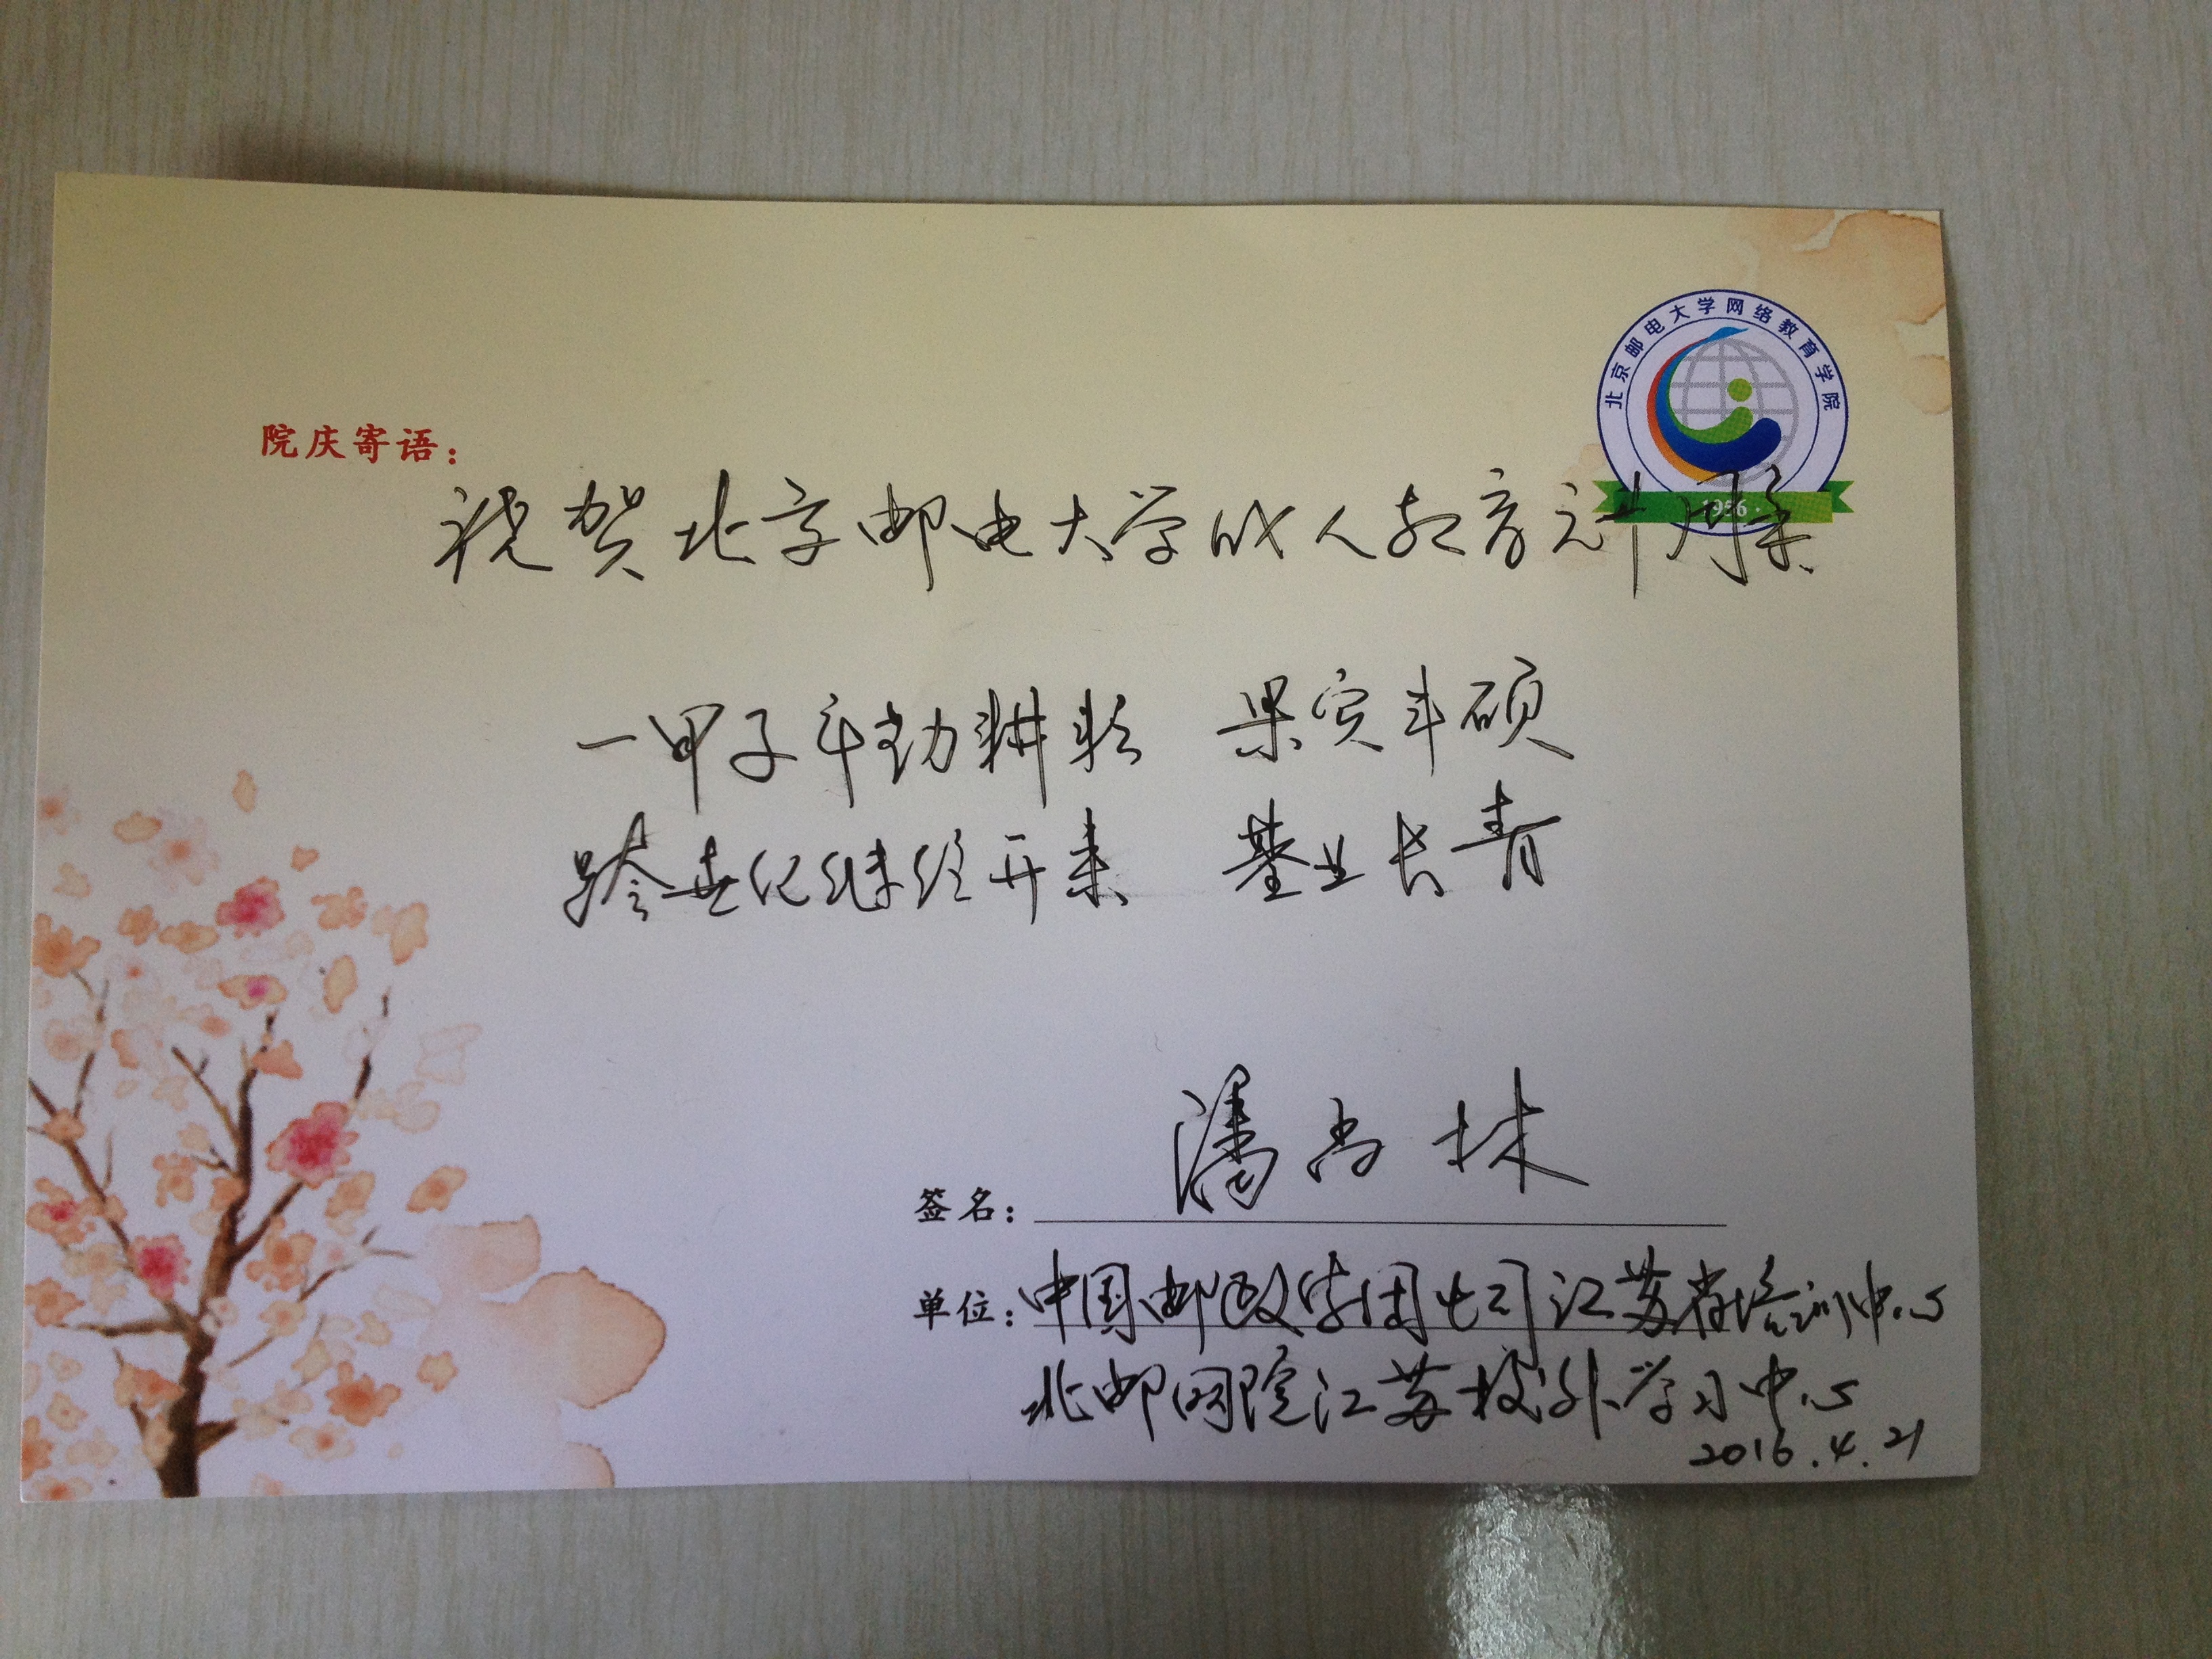 北京邮电大学网络教育学院
1956
院庆寄语：
祝贺北京邮电大学成人教育六十周年
一甲子年勤耕耘 果实丰硕
跨世纪继往开来 基业长青
签名：潘尚林
单位：中国邮政集团公司江苏省培训中心
北邮网院江苏校外学习中心
2016.4.21